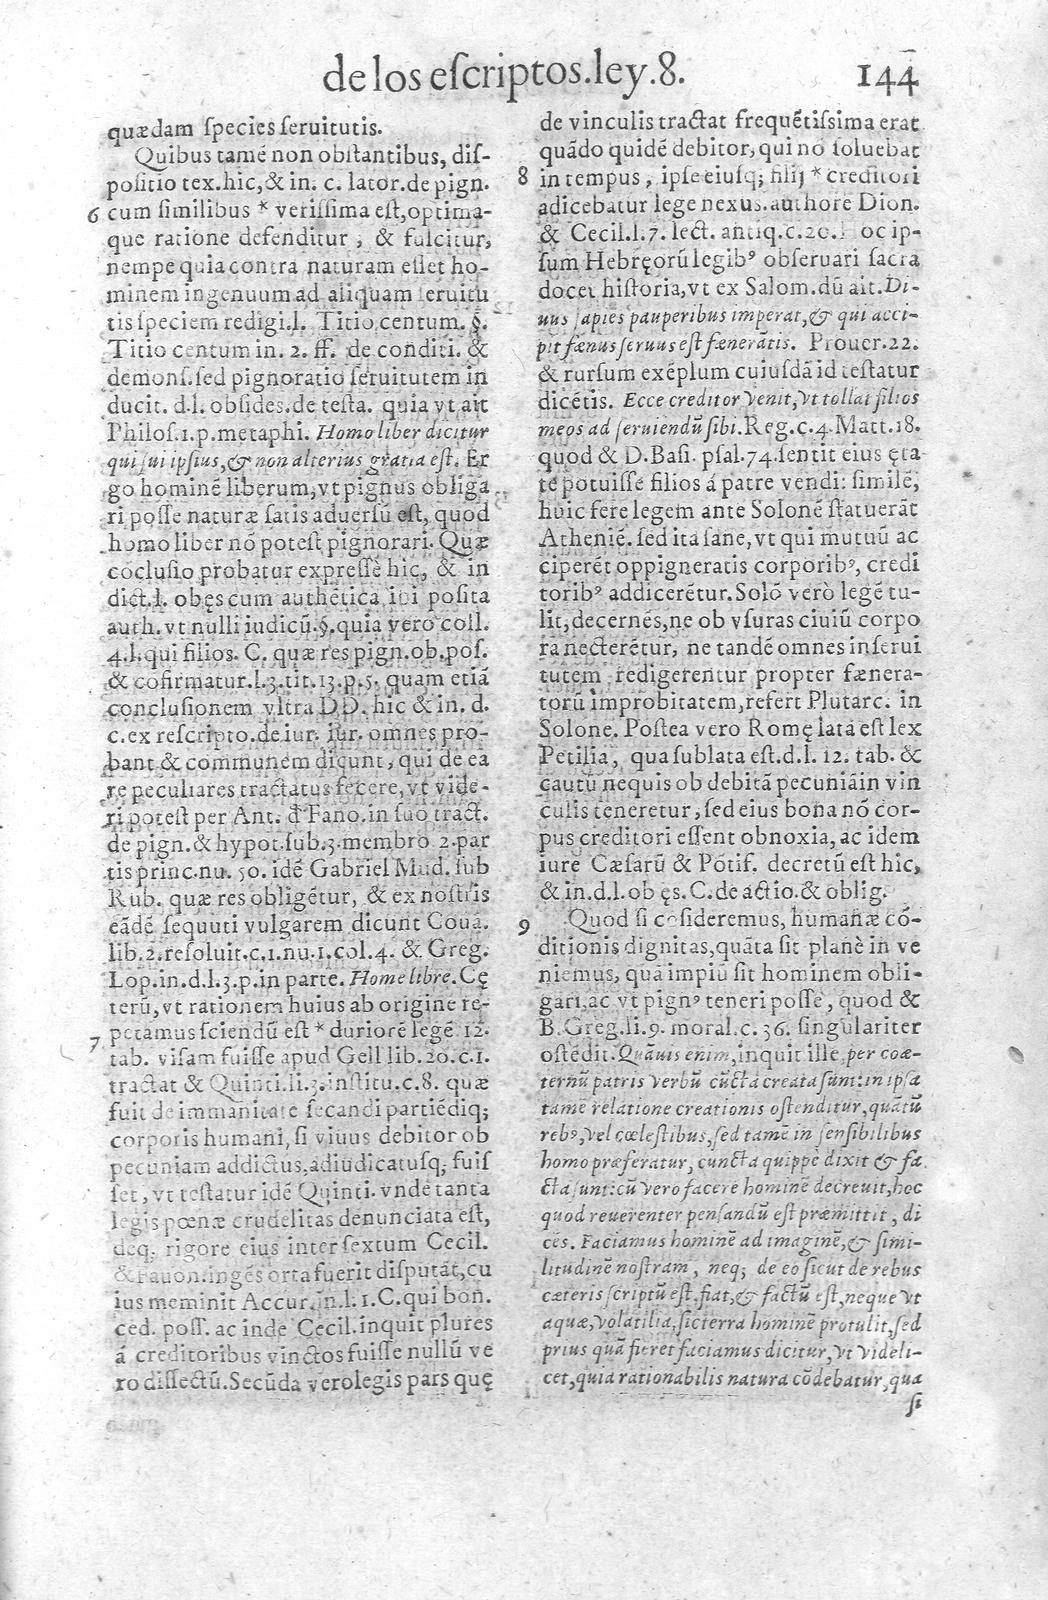 de los eſcriptos.ley.8. 144
quædam ſpecies ſeruitutis.
Quibus tamē non obſtantibus, diſ-
poſitio tex.hic,& in. c. lator.de pign.
6 cum ſimilibus * veriſsima eſt,optima-
que ratione defenditur, & fulcitur,
nempe quia contra naturam eſſet ho-
minem ingenuum ad aliquam ſeruitu
tis ſpeciem redigi.l. Titio centum. §.
Titio centum in. 2. ff. de conditi. &
demonſ.ſed pignoratio ſeruitutem in
ducit. d.l. obſides.de teſta. quia vt ait
Philoſ.1.p.metaphi. Homo liber dicitur
qui ſui ipſius,& non alterius gratia eſt. Er
go hominē liberum,vt pignus obliga
ri poſſe naturæ ſatis aduerſū eſt, quod
homo liber nō poteſt pignorari. Quæ
cōcluſio probatur expreſſè hic, & in
dict.l. ob ęs cum authētica ibi poſita
auth.vt nulli iudicū.§.quia vero coll.
4.l.qui filios. C. quæ res pign.ob.poſ.
& cōfirmatur.l.3.tit.13.p.5. quam etiā
concluſionem vltra DD. hic & in. d.
c.ex reſcripto.de iur. iur. omnes pro-
bant & communem dicunt, qui de ea
re peculiares tractatus fecere,vt vide-
ri poteſt per Ant. đ Fano.in ſuo tract.
de pign.& hypot.ſub.3.membro 2.par
tis princ.nu. 50. idē Gabriel Mud. ſub
Rub. quæ res obligētur, & ex noſtris
eādē ſequuti vulgarem dicunt Coua.
lib.2.reſoluit.c.1.nu.1.col.4. & Greg.
Lop.in.d.l.3.p.in parte. Home libre. Cę
terū,vt rationem huius ab origine re-
7 petamus ſciendū eſt * duriorē legē 12.
tab. viſam fuiſſe apud Gell lib.20.c.1.
tractat & Quinti.li.3.inſtitu.c.8. quæ
fuit de immanitate ſecandi partiēdiq;
corporis humani, ſi viuus debitor ob
pecuniam addictus,adiudicatuſq; fuiſ
ſet, vt teſtatur idē Quinti. vnde tanta
legis pœnæ crudelitas denunciata eſt,
deq. rigore eius inter ſextum Cecil.
& Fauon.ingēs orta fuerit diſputāt,cu
ius meminit Accur.in.l.1.C.qui bon.
ced. poſſ. ac inde Cecil.inquit plures
á creditoribus vinctos fuiſſe nullū ve
ro diſſectū.Secūda vero legis pars quę
de vinculis tractat frequētiſsima erat
quādo quidē debitor, qui nō ſoluebat
8 in tempus, ipſe eiuſq; filij * creditori
adicebatur lege nexus.authore Dion.
& Cecil.l.7. lect. antiq.c.20. Hoc ip-
ſum Hebręorū legibꝰ obſeruari ſacra
docet hiſtoria,vt ex Salom.dū ait.Di-
uus ſapiēs pauperibus imperat,& qui acci-
pit fœnus ſeruus eſt fœnerātis. Prouer.22.
& rurſum exēplum cuiuſdā id teſtatur
dicētis. Ecce creditor venit,vt tollat filios
meos ad ſeruiendū ſibi.Reg.c.4.Matt.18.
quod & D.Baſi. pſal.74.ſentit eius ęta
te potuiſſe filios á patre vendi: ſimilē,
huic fere legem ante Solonē ſtatuerāt
Atheniē. ſed ita ſane,vt qui mutuū ac
ciperēt oppigneratis corporibꝰ, credi
toribꝰ addicerētur.Solō verò legē tu-
lit,decernēs,ne ob vſuras ciuiū corpo
ra necterētur, ne tandē omnes in ſerui
tutem redigerentur propter fænera-
torū improbitatem,refert Plutarc. in
Solone. Poſtea vero Romę lata eſt lex
Petilia, qua ſublata eſt.d.l. 12. tab. &
cautū nequis ob debitā pecuniā in vin
culis teneretur, ſed eius bona nō cor-
pus creditori eſſent obnoxia, ac idem
iure Cæſarū & Pōtif. decretū eſt hic,
& in.d.l.ob ęs.C.de actio.& oblig.
9 Quod ſi cōſideremus, humanæ cō-
ditionis dignitas,quāta ſit planè in ve
niemus, quā impiū ſit hominem obli-
gari,ac vt pignꝰ teneri poſſe, quod &
B.Greg.li.9. moral.c. 36. ſingulariter
oſtēdit.Quāuis enim,inquit ille,per coæ-
ternū patris verbū cūcta creata ſunt:in ipſa
tamē relatione creationis oſtenditur,quātū
rebꝰ,vel cœleſtibus,ſed tamē in ſenſibilibus
homo præferatur, cuncta quippè dixit & fa
cta ſunt:cū vero facere hominē decreuit,hoc
quod reuerenter penſandū eſt præmittit, di
cēs. Faciamus hominē ad imaginē,& ſimi-
litudinē noſtram, neq; de eo ſicut de rebus
cæteris ſcriptū eſt.fiat,& factū eſt,neque vt
aquæ,volatilia,ſic terra hominē protulit,ſed
prius quā fieret faciamus dicitur,vt videli-
cet,quia rationabilis natura cōdebatur,qua
ſi